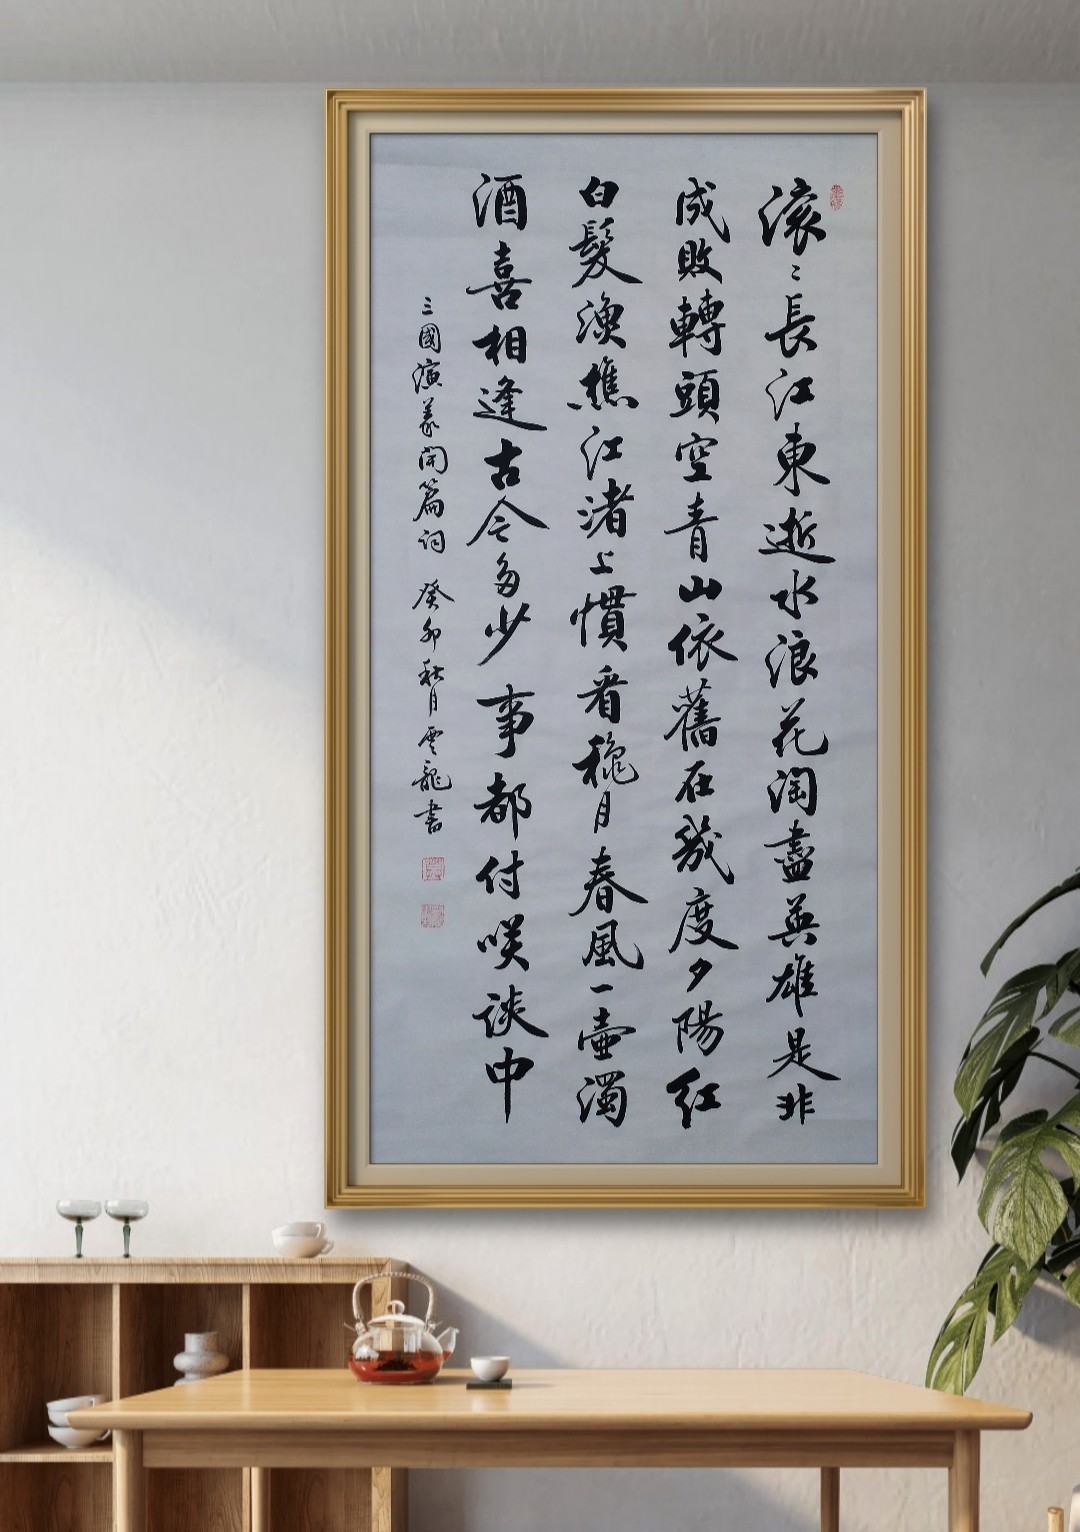 滚〻長江東逝水浪花淘盡英雄是非
成敗轉頭空青山依舊在幾度夕陽紅
白髮漁樵江渚上慣看穐月春風一壺濁
酒喜相逢古今多少事都付咲談中
三國演義開篇詞 癸卯秋月雲龍書